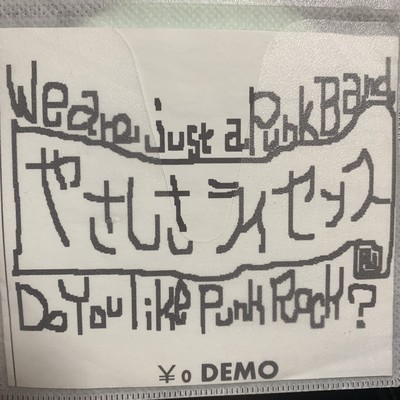 We are just a Punk Band
やさしさライセンス
Do You like Punk Rock?
¥0 DEMO